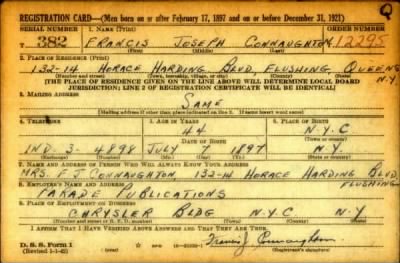 Q
REGISTRATION CARD—(Men born on or after February 17, 1897 and on or before December 31, 1921)
SERIAL NUMBER 1. NAME (Print) ORDER NUMBER
T 382 FRANCIS JOSEPH CONNAUGHTON 12295
(First) (Middle) (Last)
2. PLACE OF RESIDENCE (Print)
132-14 HORACE HARDING BLVD. FLUSHING QUEENS N.Y
(Number and street) (Town, township, village, or city) (County) (State)
[THE PLACE OF RESIDENCE GIVEN ON THE LINE ABOVE WILL DETERMINE LOCAL BOARD
JURISDICTION; LINE 2 OF REGISTRATION CERTIFICATE WILL BE IDENTICAL]
3. MAILING ADDRESS
SAME
[Mailing address if other than place indicated on line 2. If same insert word same]
4. TELEPHONE 5. AGE IN YEARS 6. PLACE OF BIRTH
44 N.Y.C
DATE OF BIRTH
IND. 3- 4898 JULY 7 1897 N.Y.
(Exchange) (Number) (Mo.) (Day) (Yr.) (State or country)
7. NAME AND ADDRESS OF PERSON WHO WILL ALWAYS KNOW YOUR ADDRESS
MRS. F J CONNAUGHTON 132-14 HORACE HARDING BLVD. FLUSHING
8. EMPLOYER'S NAME AND ADDRESS
PARADE PUBLICATIONS
9. PLACE OF EMPLOYMENT OR BUSINESS
CHRYSLER BLDG N.Y.C N.Y
(Number and street or R. F. D. number) (Town) (County) (State)
I AFFIRM THAT I HAVE VERIFIED ABOVE ANSWERS AND THAT THEY ARE TRUE.
D. S. S. Form 1
(Revised 1-1-42) Francis J. Connaughton
(Registrant's signature)